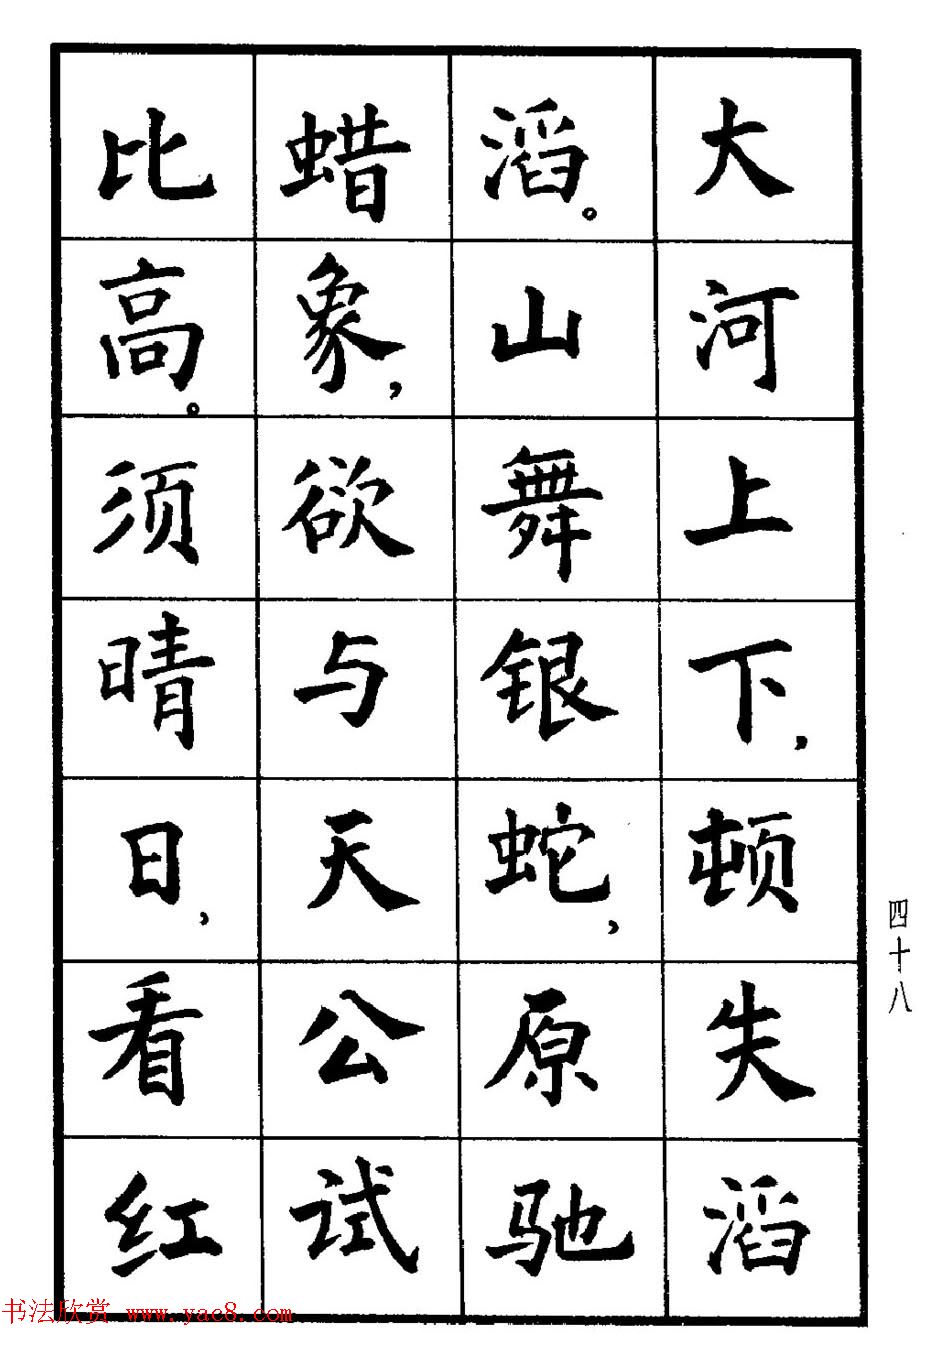 大河上下，顿失滔
滔。山舞银蛇，原驰
蜡象，欲与天公试
比高。须晴日，看红
四十八
书法欣赏 www.yac8.com